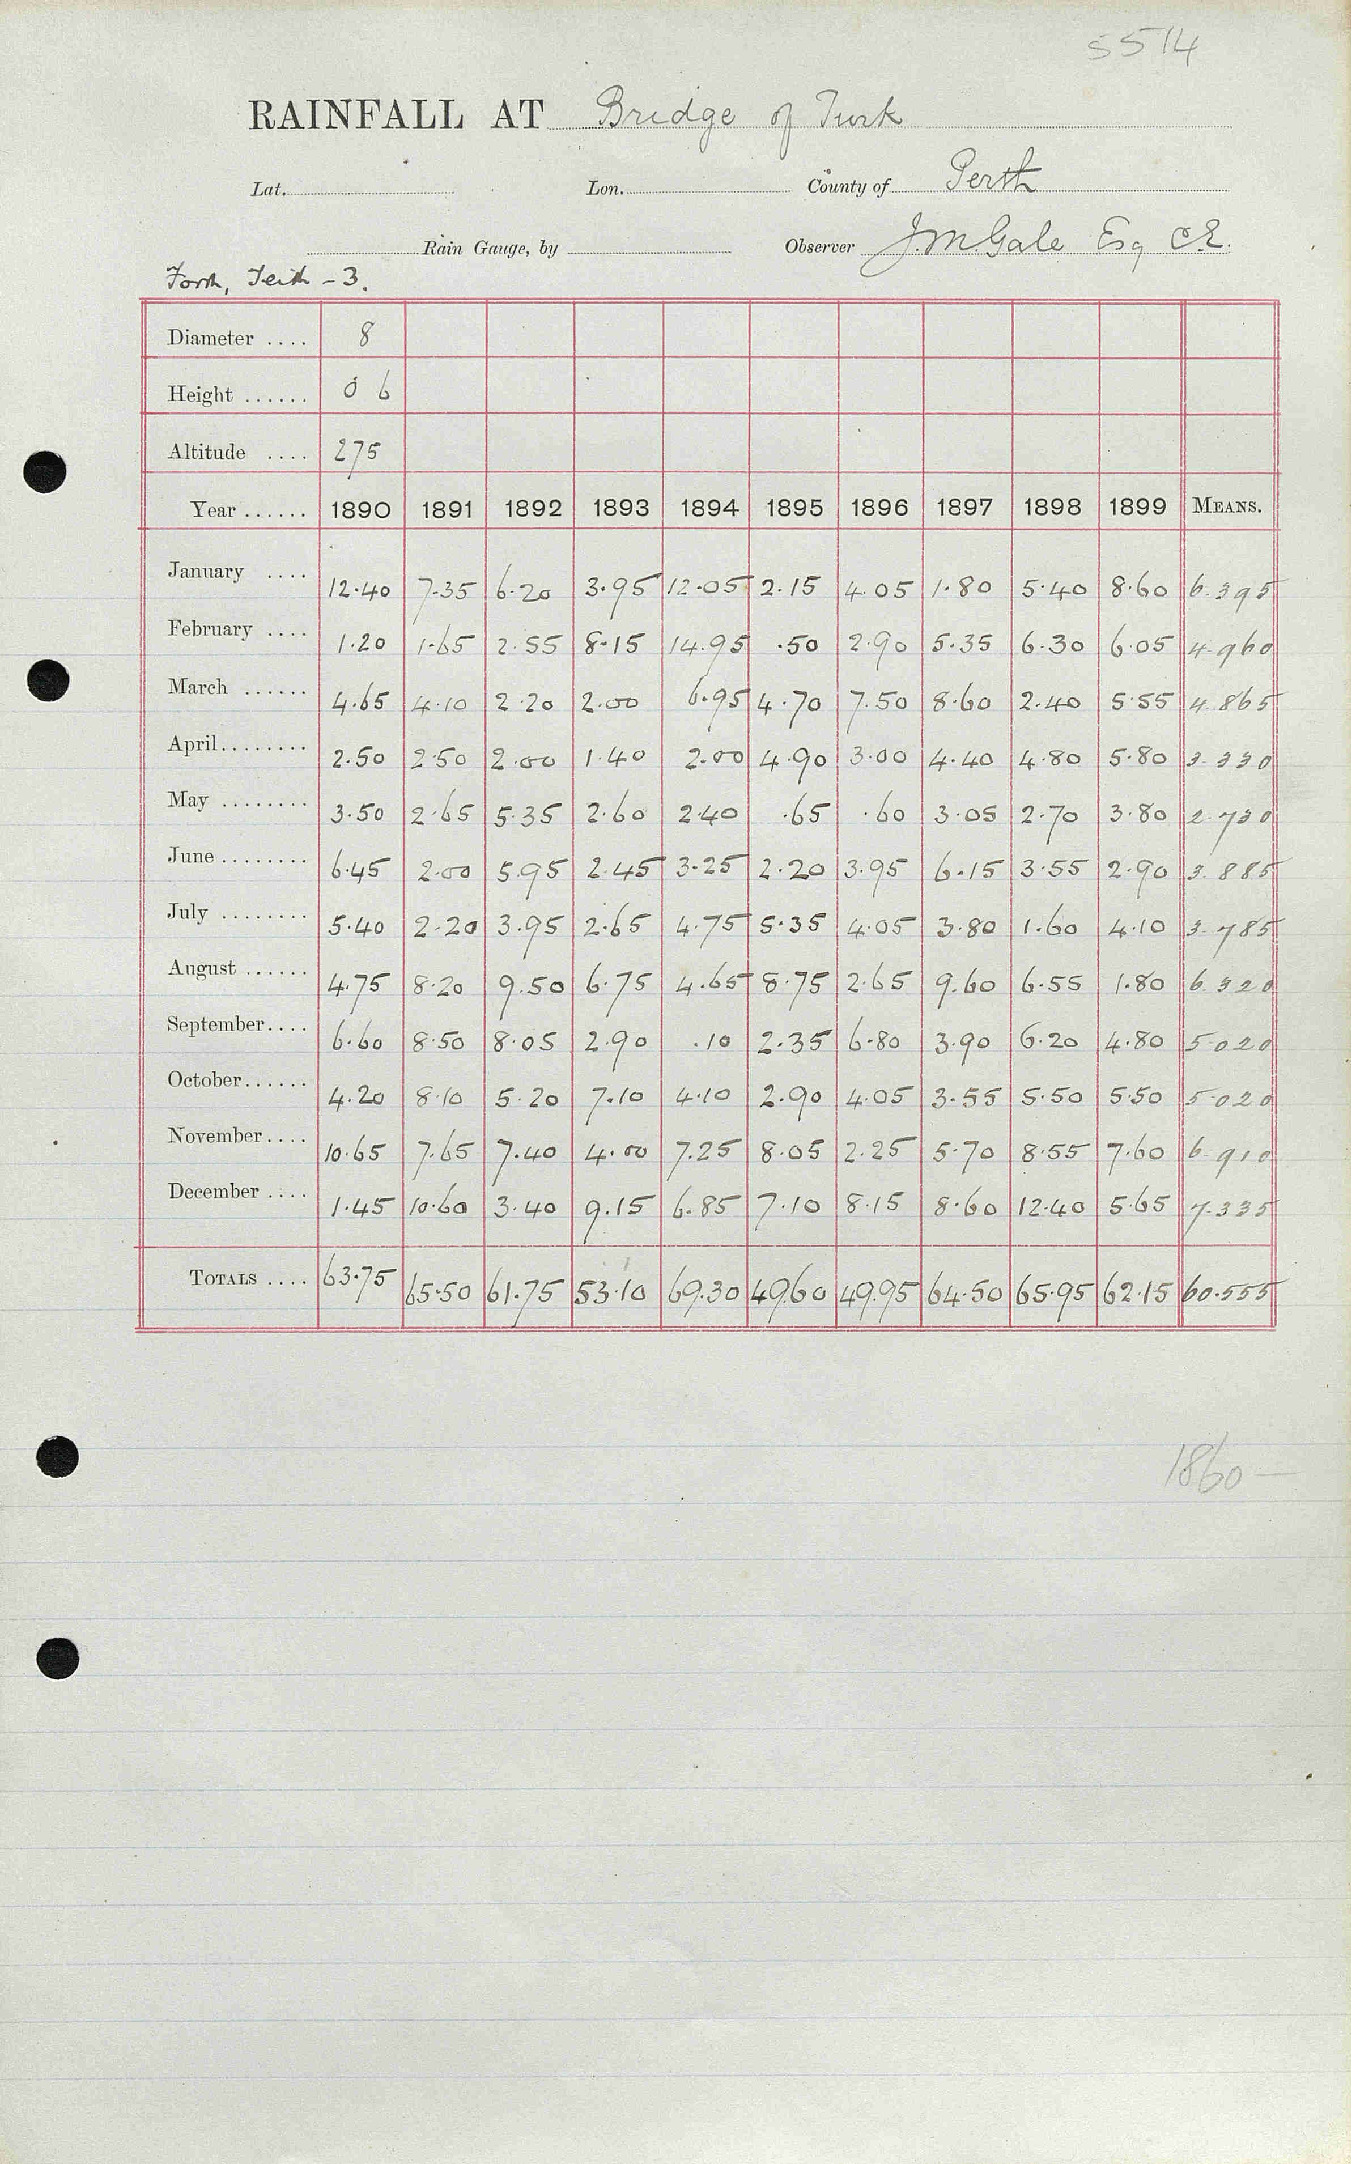 5514
RAINFALL AT Bridge of Turk
Lat. Lon. County of Perth
Rain Gauge, by Observer J. M. Gale Esq C.E.
Forth, Teith - 3.
Diameter .... 8
Height ...... 0 6
Altitude .... 275
Year ...... 1890 1891 1892 1893 1894 1895 1896 1897 1898 1899 MEANS.
January .... 12.40 7.35 6.20 3.95 12.05 2.15 4.05 1.80 5.40 8.60 6.395
February .... 1.20 1.65 2.55 8.15 14.95 .50 2.90 5.35 6.30 6.05 4.960
March ...... 4.65 4.10 2.20 2.00 6.95 4.70 7.50 8.60 2.40 5.55 4.865
April........ 2.50 2.50 2.00 1.40 2.00 4.90 3.00 4.40 4.80 5.80 3.330
May ........ 3.50 2.65 5.35 2.60 2.40 .65 .60 3.05 2.70 3.80 2.730
June ........ 6.45 2.00 5.95 2.45 3.25 2.20 3.95 6.15 3.55 2.90 3.885
July ........ 5.40 2.20 3.95 2.65 4.75 5.35 4.05 3.80 1.60 4.10 3.785
August ...... 4.75 8.20 9.50 6.75 4.65 8.75 2.65 9.60 6.55 1.80 6.320
September.... 6.60 8.50 8.05 2.90 .10 2.35 6.80 3.90 6.20 4.80 5.020
October...... 4.20 8.10 5.20 7.10 4.10 2.90 4.05 3.55 5.50 5.50 5.020
November.... 10.65 7.65 7.40 4.00 7.25 8.05 2.25 5.70 8.55 7.60 6.910
December .... 1.45 10.60 3.40 9.15 6.85 7.10 8.15 8.60 12.40 5.65 7.335
TOTALS .... 63.75 65.50 61.75 53.10 69.30 49.60 49.95 64.50 65.95 62.15 60.555
1860 —